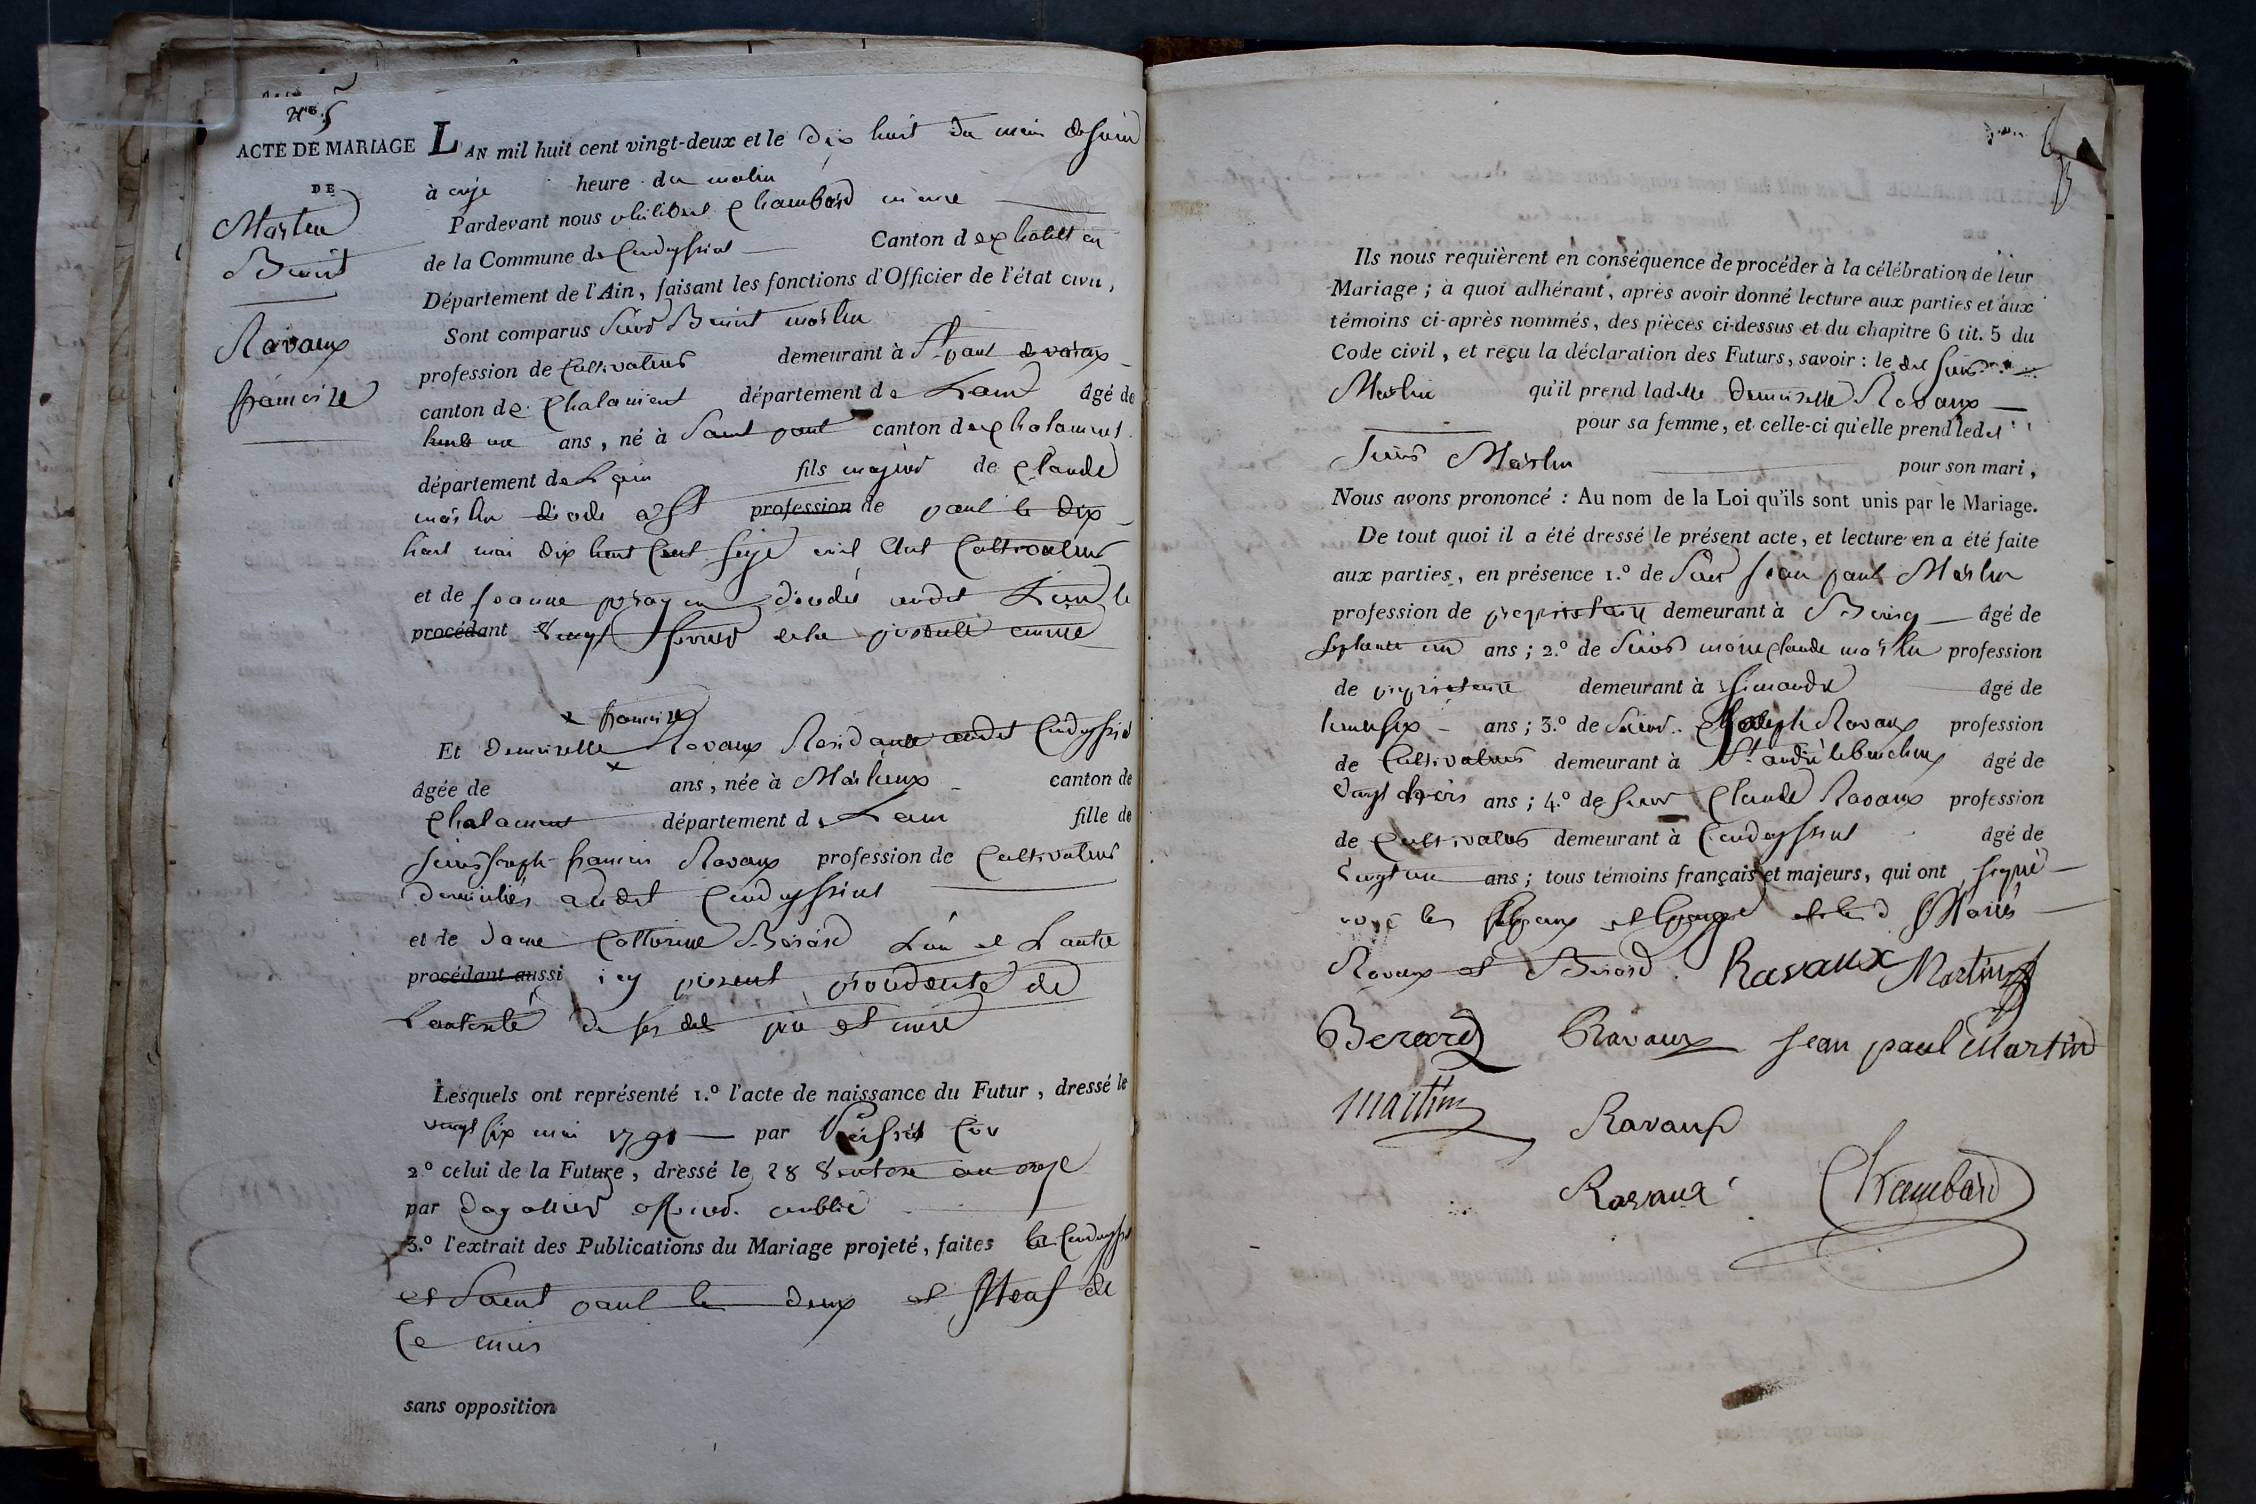 N° 5
ACTE DE MARIAGE
DE
Martin
Benoit
Ravaux
françoise
L'AN mil huit cent vingt-deux et le dix huit du mois de juin
à onze heure du matin
Pardevant nous philibert Chambard maire
de la Commune de Condeyssiat Canton de chatillon
Département de l'Ain, faisant les fonctions d'Officier de l'état civil,
Sont comparus Sieur Benoit martin
profession de Cultivateur demeurant à St paul de varax
canton de Chalamont département de Lain âgé de
trente un ans, né à Saint paul canton de chalamont
département de Lain fils majeur de Claude
martin décédé a St profession de paul le dix
huit mai dix huit Cent seize vivant Cultivateur
et de Jeanne décédée audit Lieu le
procédant Vingt fevrier de la presente année
x françoise
Et demoiselle x Ravaux Residante audit Condeyssiat
âgée de ans, née à Marlieux canton de
Chalamont département de Lain fille de
sieur Joseph françois Ravaux profession de Cultivateur
domiciliés audit Condeyssiat
et de dame Catherine Berard Lun et Lautre
procédant aussi icy present procédante de
Lautorité de ses dits père et mère
Lesquels ont représenté 1.° l'acte de naissance du Futur, dressé le
vingt six mai 1791 par
2.° celui de la Future, dressé le 28 Ventose an onze
par dagallier officier public
3.° l'extrait des Publications du Mariage projeté, faites à Condeyssiat
et Saint paul le deux et Neuf de
Ce mois
sans opposition
Ils nous requièrent en conséquence de procéder à la célébration de leur
Mariage; à quoi adhérant, après avoir donné lecture aux parties et aux
témoins ci-après nommés, des pièces ci-dessus et du chapitre 6 tit. 5 du
Code civil, et reçu la déclaration des Futurs, savoir: le dit sieur
Martin qu'il prend ladite demoiselle Ravaux
pour sa femme, et celle-ci qu'elle prend ledit
Sieur Martin pour son mari,
Nous avons prononcé: Au nom de la Loi qu'ils sont unis par le Mariage.
De tout quoi il a été dressé le présent acte, et lecture en a été faite
aux parties, en présence 1.° de Sieur Jean paul Martin
profession de propriétaire demeurant à âgé de
septante un ans; 2.° de Sieur marie Claude martin profession
de propriétaire demeurant à simandre âgé de
trente six ans; 3.° de Sieur Joseph Ravaux profession
de Cultivateur demeurant à St andré le bouchoux âgé de
vingt trois ans; 4.° de sieur Claude Ravaux profession
de Cultivateur demeurant à Condeyssiat âgé de
vingt un ans; tous témoins français et majeurs, qui ont signé
avec les Epoux et les Mariés
Ravaux et Berard. Ravaux Martin
Berard Ravaux jean paul Martin
martin Ravaux
Ravaux Chambard